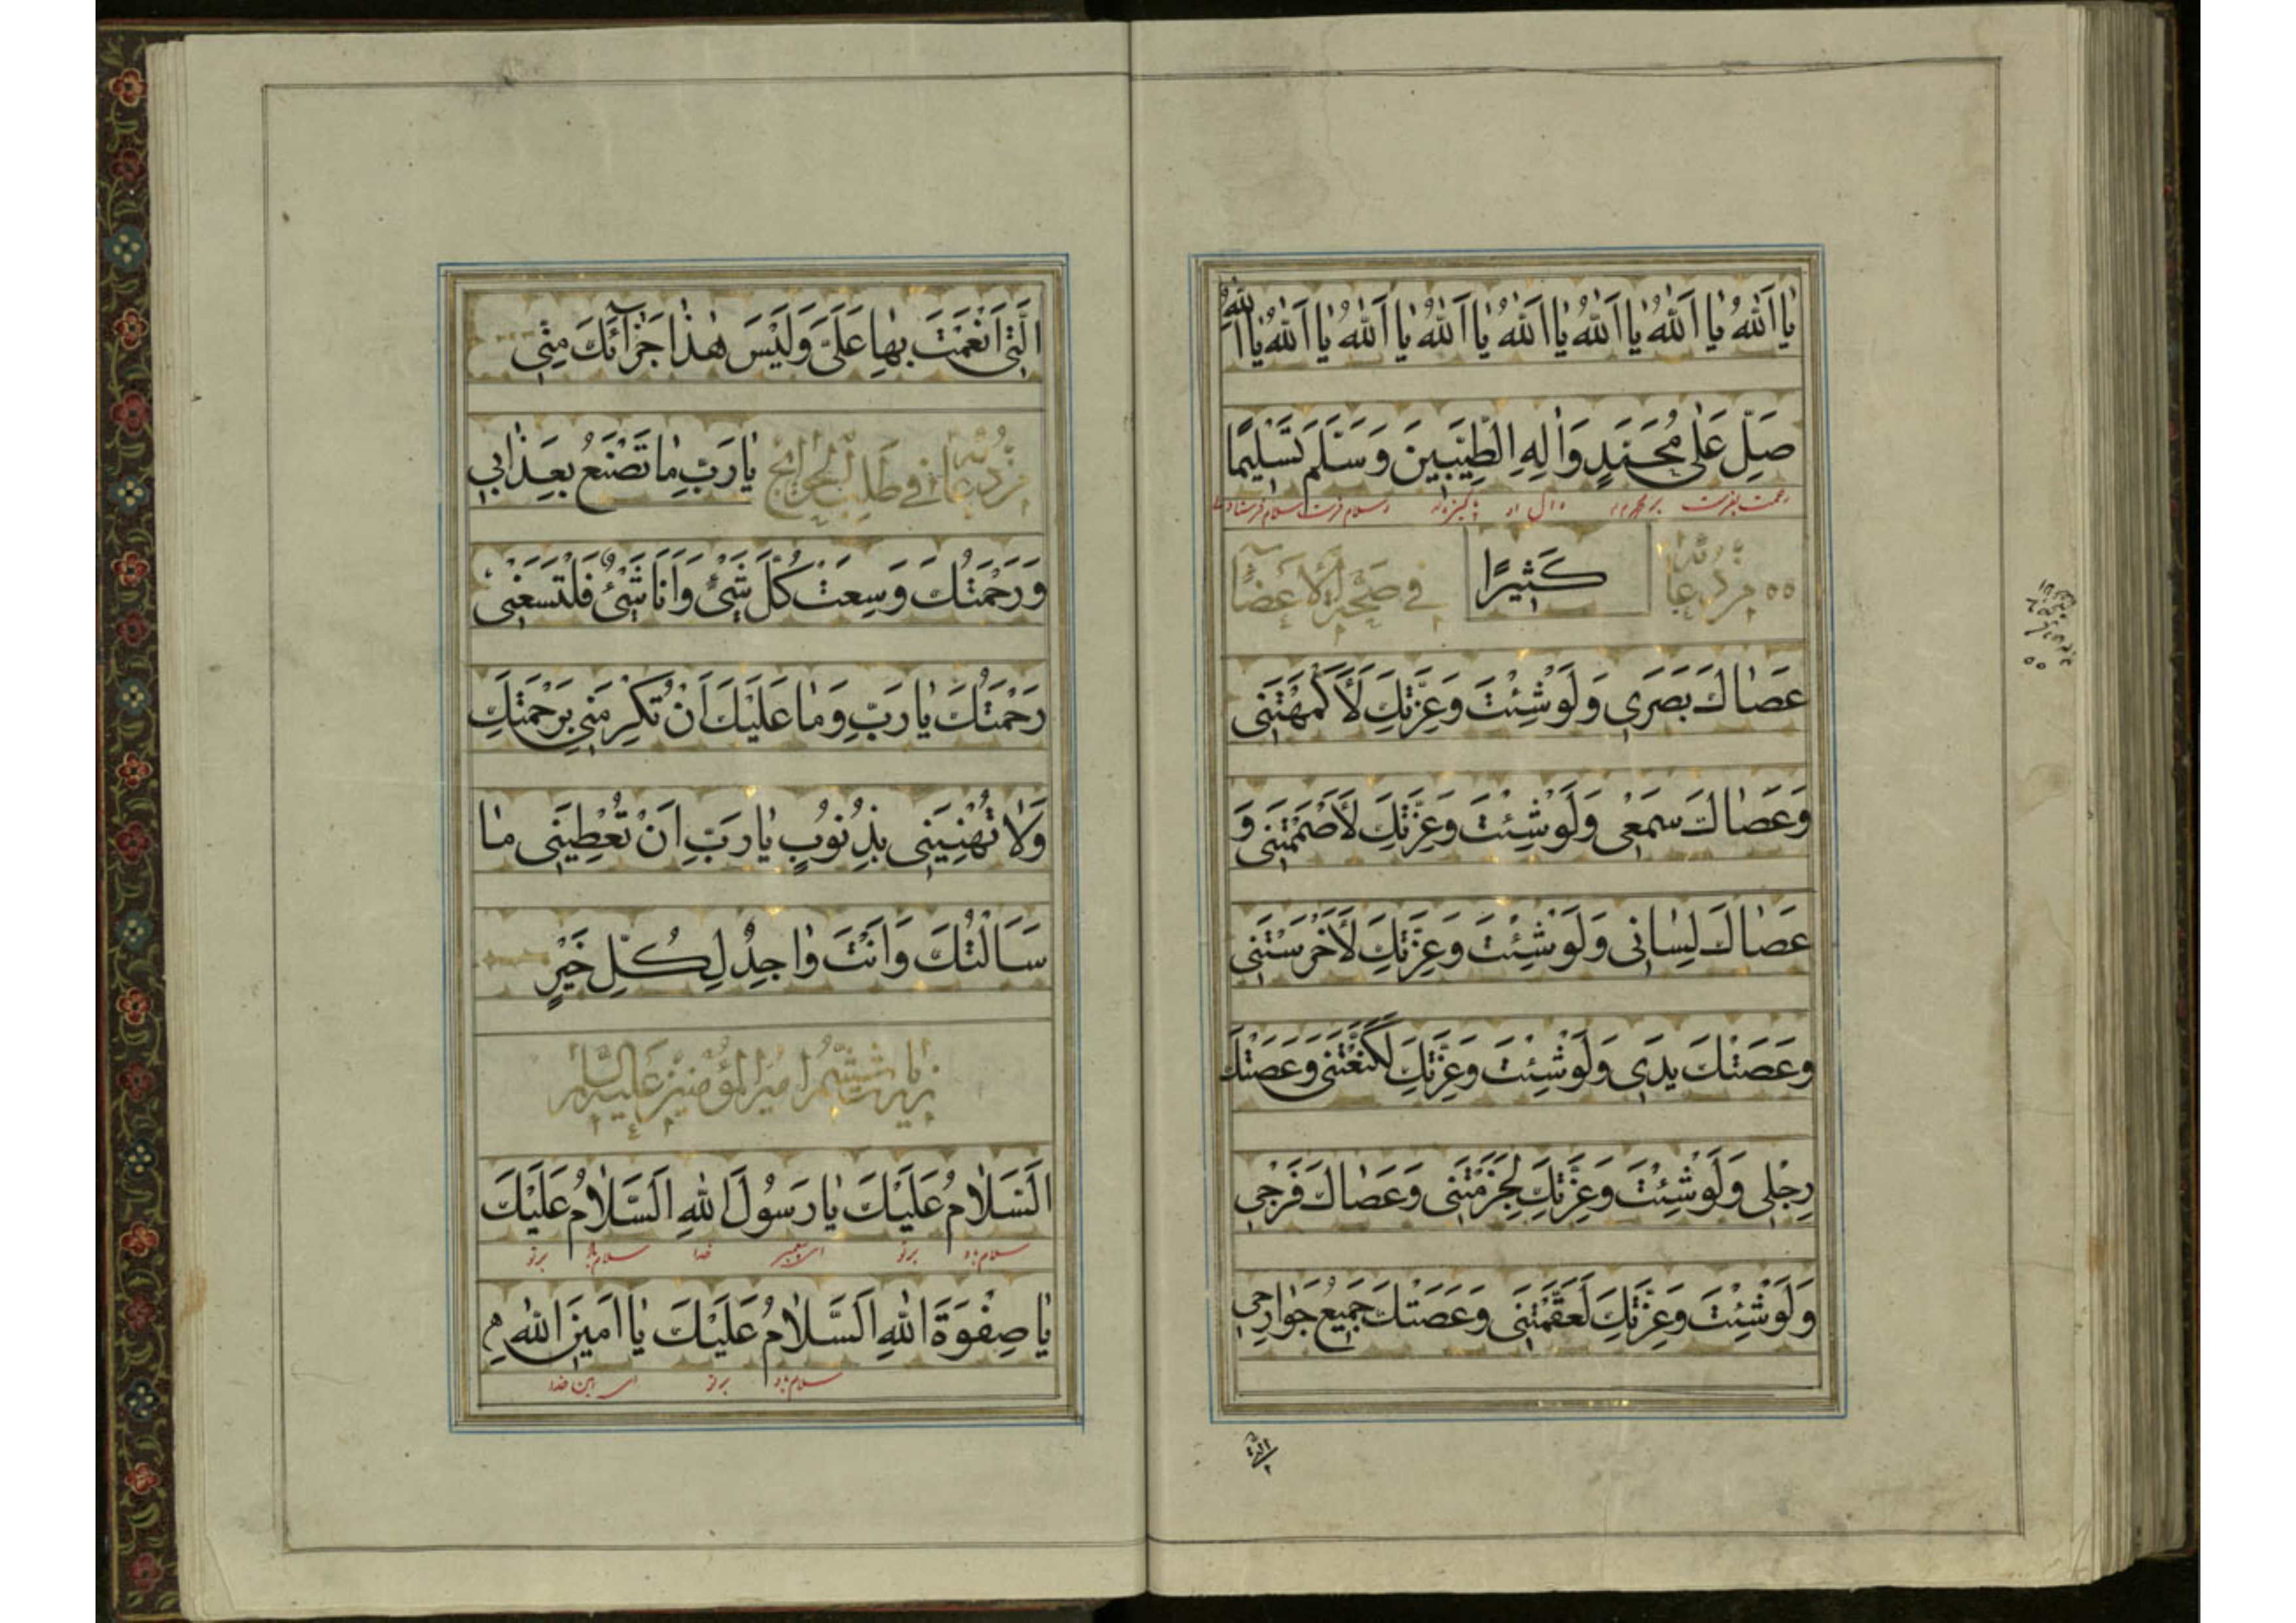 يٰا اَللّٰهُ يٰا اَللّٰهُ يٰا اَللّٰهُ يٰا اَللّٰهُ يٰا اَللّٰهُ يٰا اَللّٰهُ يٰا اَللّٰهُ
صَلِّ عَلىٰ مُحَمَّدٍ وَاٰلِهِ الطَّيِّبِينَ وَسَلَّمَ تَسْلِيمًا
رحمت بفرست بر محمد وآل او پاكيزه وسلام فرست سلام فرستادنى
كَثِيرًا
فى صَحِيحَةِ الْاَعْضٰآءِ
عَصٰاكَ بَصَرَى وَلَوْ شِئْتَ وَعِزَّتِكَ لَأَكْمَهْتَنَى
وَعَصٰاكَ سَمْعِى وَلَوْ شِئْتَ وَعِزَّتِكَ لَأَصْمَمْتَنَى وَ
عَصٰاكَ لِسٰانِى وَلَوْ شِئْتَ وَعِزَّتِكَ لَأَخْرَسْتَنَى
وَعَصَتْكَ يَدَى وَلَوْ شِئْتَ وَعِزَّتِكَ لَكَنَّعْتَنَى وَعَصَتْكَ
رِجْلِى وَلَوْ شِئْتَ وَعِزَّتِكَ لَجَزَمْتَنَى وَعَصٰاكَ فَرْجِى
وَلَوْ شِئْتَ وَعِزَّتِكَ لَعَقَّمْتَنَى وَعَصَتْكَ جَمِيعُ جَوٰارِحِى
الَّتِى
الَّتِى اَنْعَمْتَ بِهٰا عَلَىَّ وَلَيْسَ هٰذٰا جَزٰآئَكَ مِنِّى
دعا فى طَلَبِ الْحَوٰائِجِ يٰا رَبِّ مٰا تَصْنَعُ بِعَذٰابِى
وَرَحْمَتُكَ وَسِعَتْ كُلَّ شَىْءٍ وَاَنَا شَىْءٌ فَلْتَسَعْنِى
رَحْمَتُكَ يٰا رَبِّ وَمٰا عَلَيْكَ اَنْ تُكْرِمَنِى بِرَحْمَتِكَ
وَلٰا تُهِنِينَى بِذُنُوبٍ يٰا رَبِّ اَنْ تُعْطِيَنَى مٰا
سَاَلْتُكَ وَاَنْتَ وٰاجِدٌ لِكُلِّ خَيْرٍ
زيارت ششم امير المؤمنين عليه السلام
اَلسَّلٰامُ عَلَيْكَ يٰا رَسُولَ اللهِ اَلسَّلٰامُ عَلَيْكَ
سلام باد برتو اى پيغمبر خدا سلام باد برتو
يٰا صِفْوَةَ اللهِ اَلسَّلٰامُ عَلَيْكَ يٰا اَمِينَ اللهِ
سلام باد برتو اى امين خدا